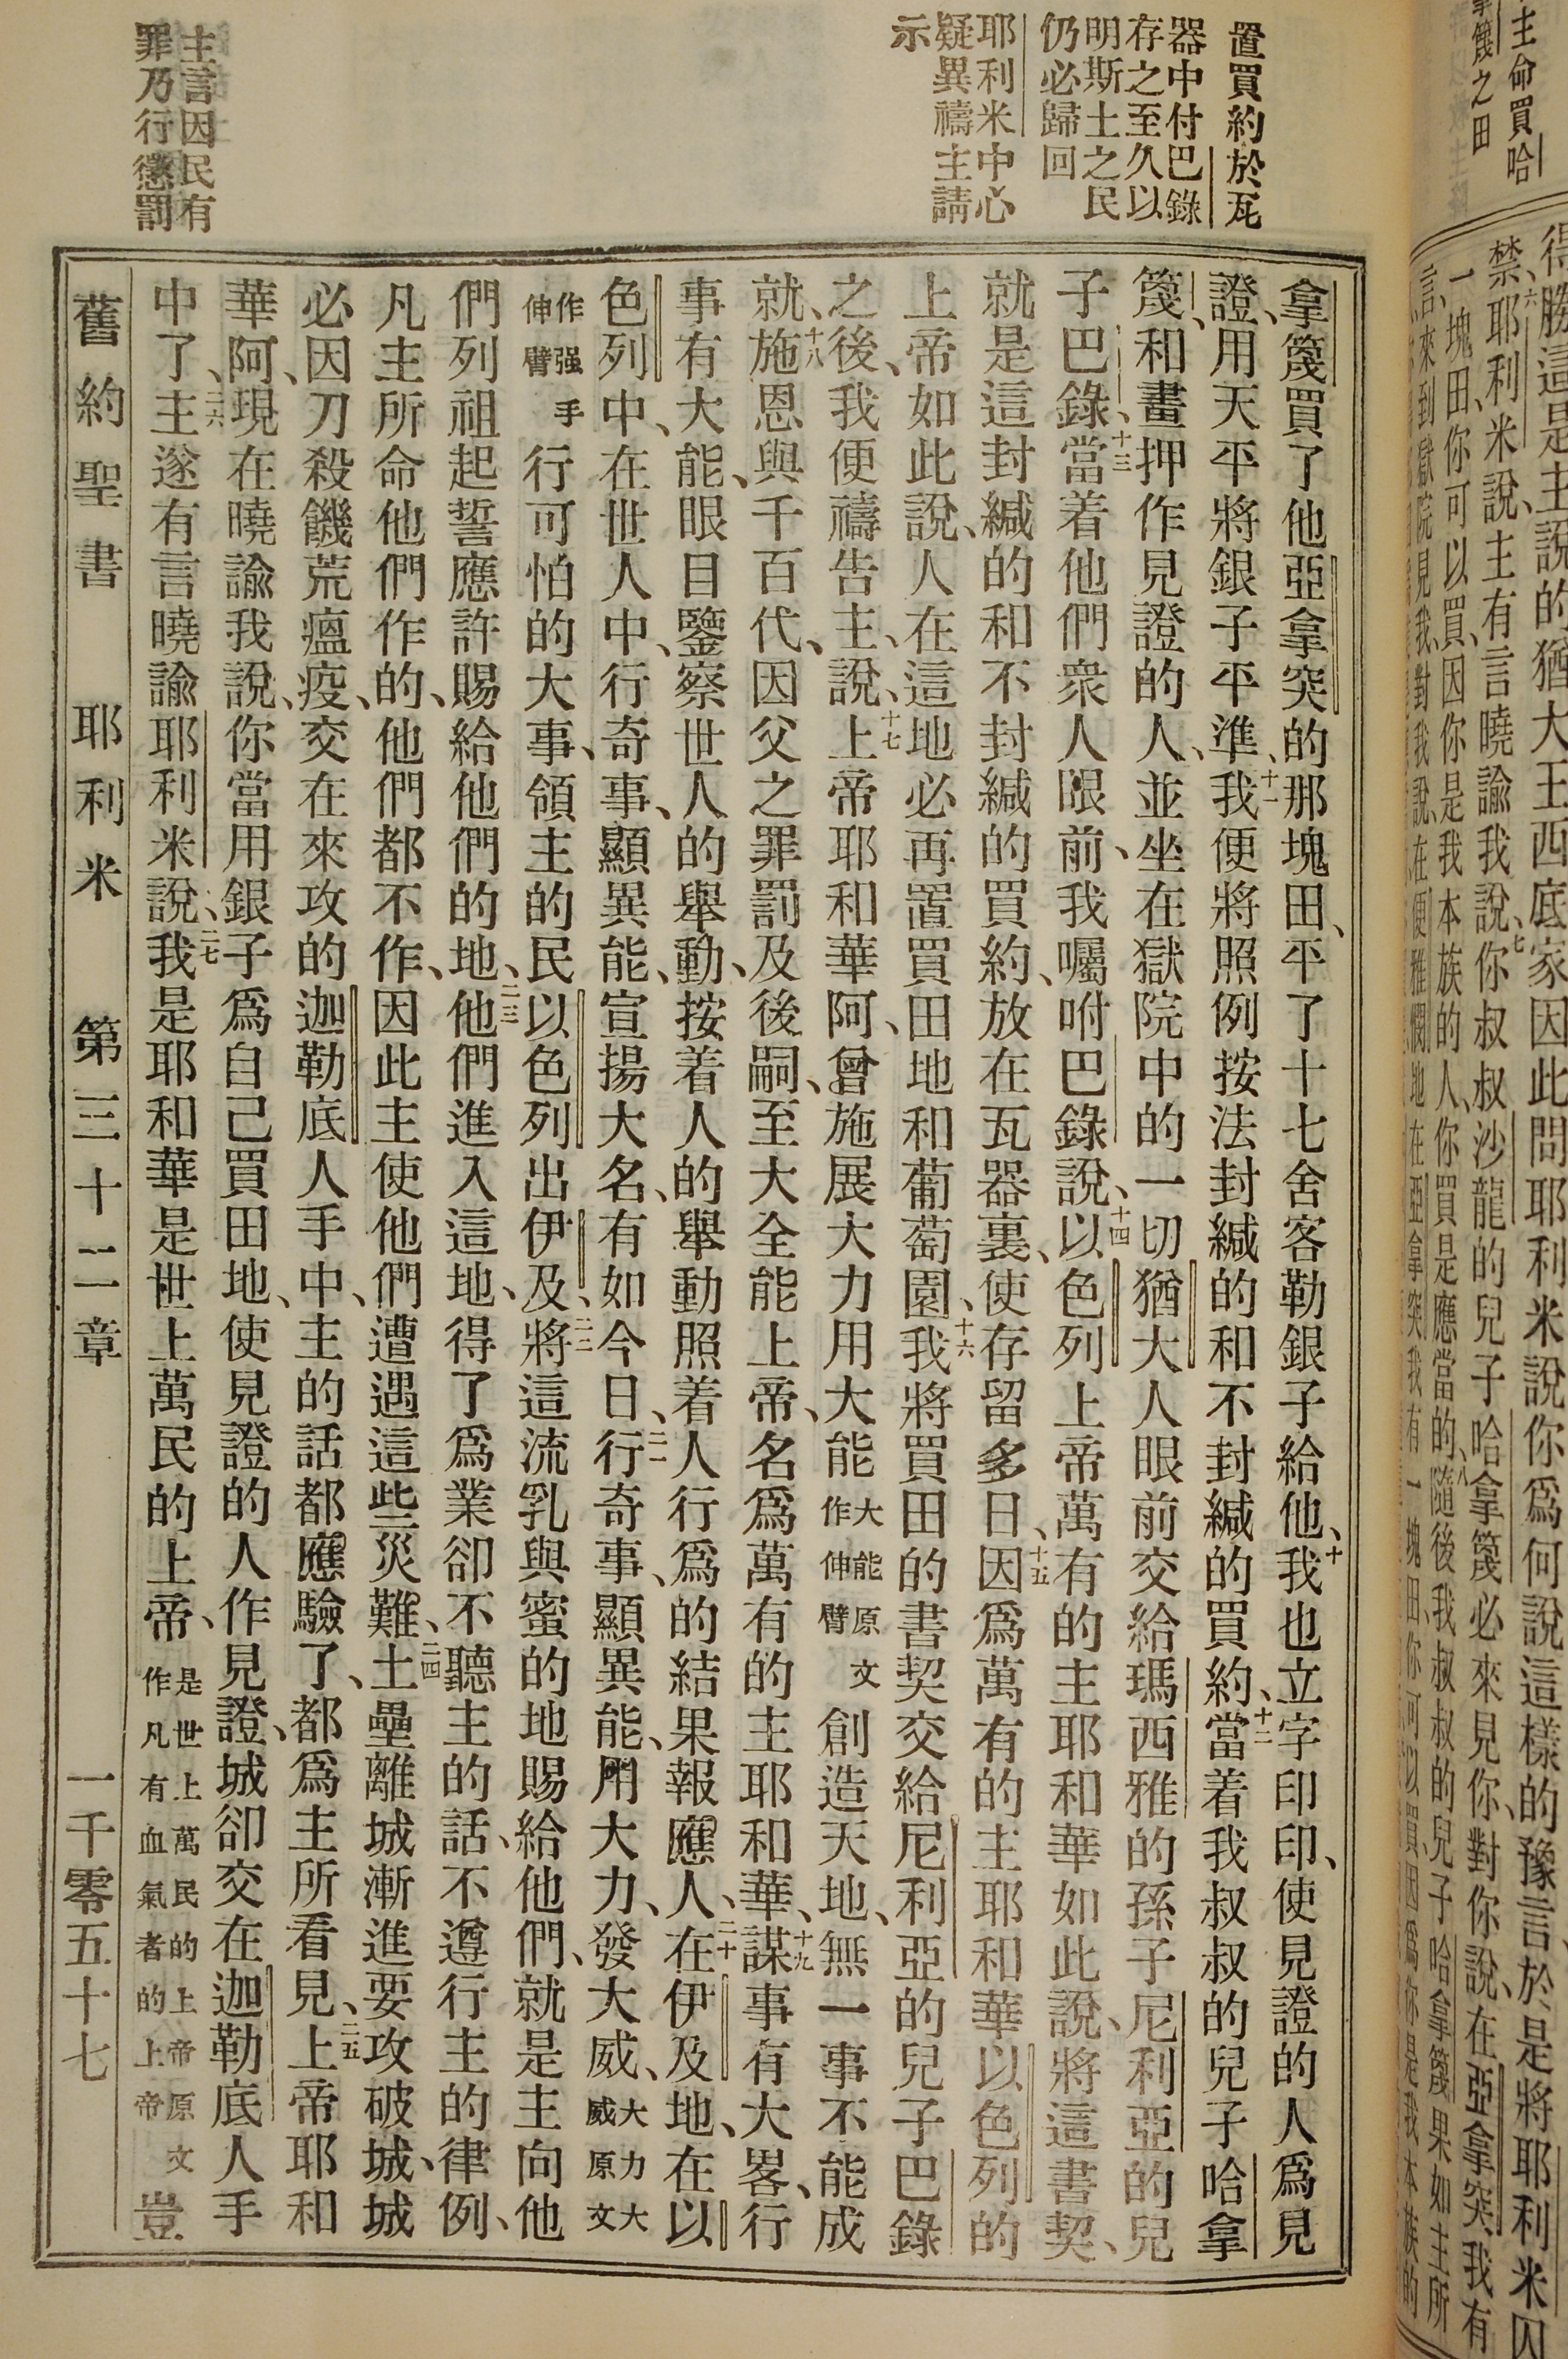 置買約於瓦
器中付巴錄
存之至久以
明斯土之民
仍必歸回
耶利米中心
疑異禱主請
示
主言因民有
罪乃行懲罰
拿篾買了他亞拿突的那塊田、平了十七舍客勒銀子給他、十我也立字印印、使見證的人爲見
證、用天平將銀子平準、十一我便將照例按法封緘的和不封緘的買約、十二當着我叔叔的兒子哈拿
篾、和畫押作見證的人、並坐在獄院中的一切猶大人眼前交給瑪西雅的孫子尼利亞的兒
子巴錄、十三當着他們衆人眼前、我囑咐巴錄說、十四以色列上帝萬有的主耶和華如此說、將這書契、
就是這封緘的和不封緘的買約、放在瓦器裏、使存留多日、十五因爲萬有的主耶和華以色列的
上帝如此說、人在這地必再置買田地和葡萄園、十六我將買田的書契交給尼利亞的兒子巴錄
之後、我便禱告主、說、十七上帝耶和華阿、曾施展大力用大能大能原文作伸臂創造天地、無一事不能成
就、十八施恩與千百代、因父之罪罰及後嗣、至大全能上帝、名爲萬有的主耶和華、十九謀事有大畧、行
事有大能、眼目鑒察世人的舉動、按着人的舉動照着人行爲的結果報應人、二十在伊及地、在以
色列中、在世人中、行奇事、顯異能、宣揚大名、有如今日、二一行奇事、顯異能、用大力、發大威、大力大威原文
作强手伸臂行可怕的大事、領主的民以色列出伊及、二二將這流乳與蜜的地賜給他們、就是主向他
們列祖起誓應許賜給他們的地、二三他們進入這地、得了爲業卻不聽主的話、不遵行主的律例、
凡主所命他們作的、他們都不作、因此主使他們遭遇這些災難、二四土壘離城漸進要攻破城、城
必因刀殺饑荒瘟疫、交在來攻的迦勒底人手中、主的話都應驗了、都爲主所看見、二五上帝耶和
華阿、現在曉諭我說、你當用銀子爲自己買田地、使見證的人作見證、城卻交在迦勒底人手
中了、二六主遂有言曉諭耶利米說、二七我是耶和華是世上萬民的上帝、是世上萬民的上帝原文作凡有血氣者的上帝豈
舊約聖書 耶利米 第三十二章 一千零五十七
主命買哈
拿篾之田
得勝這是主說的猶大王西底家因此問耶利米說你爲何說這樣的豫言、於是將耶利米囚
禁、六耶利米說、主有言曉諭我說、七你叔叔沙龍的兒子哈拿篾必來見你、對你說、在亞拿突我有
一塊田、你可以買、因你是我本族的人、你買是應當的、八隨後我叔叔的兒子哈拿篾果如主所
言、來到獄院見我、對我說、在便雅憫地在亞拿突我有一塊田、你可以買、因爲你是我本族的